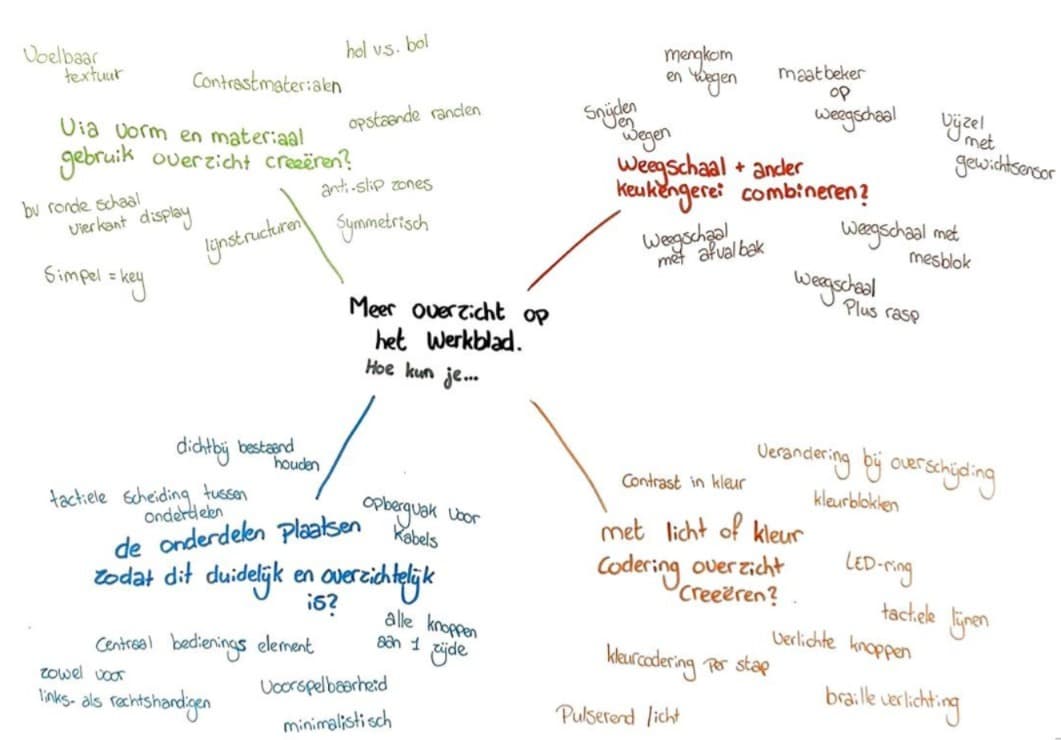 Voelbaar
textuur
Contrastmaterialen
hol v.s. bol
opstaande randen
Via vorm en materiaal
gebruik overzicht creeëren?
anti-slip zones
bv ronde schaal
vierkant display
lijnstructuren
Symmetrisch
Simpel = key
mengkom
en wegen
maatbeker
op
weegschaal
Snijden
en
wegen
Vijzel
met
gewichtsensor
Weegschaal + ander
keukengerei combineren?
Weegschaal
met afvalbak
Weegschaal met
mesblok
Weegschaal
Plus rasp
Meer overzicht op
het Werkblad.
Hoe kun je...
dichtbij bestaand
houden
tactiele scheiding tussen
onderdelen
opbergvak voor
kabels
de onderdelen plaatsen
zodat dit duidelijk en overzichtelijk
is?
alle knoppen
aan 1 zijde
Centraal bedienings element
zowel voor
links- als rechtshandigen
Voorspelbaarheid
minimalistisch
Verandering bij overschijding
Contrast in kleur
kleurblokken
met licht of kleur
Codering overzicht
Creeëren?
LED-ring
tactiele lijnen
Verlichte knoppen
kleurcodering per stap
braille verlichting
Pulserend licht